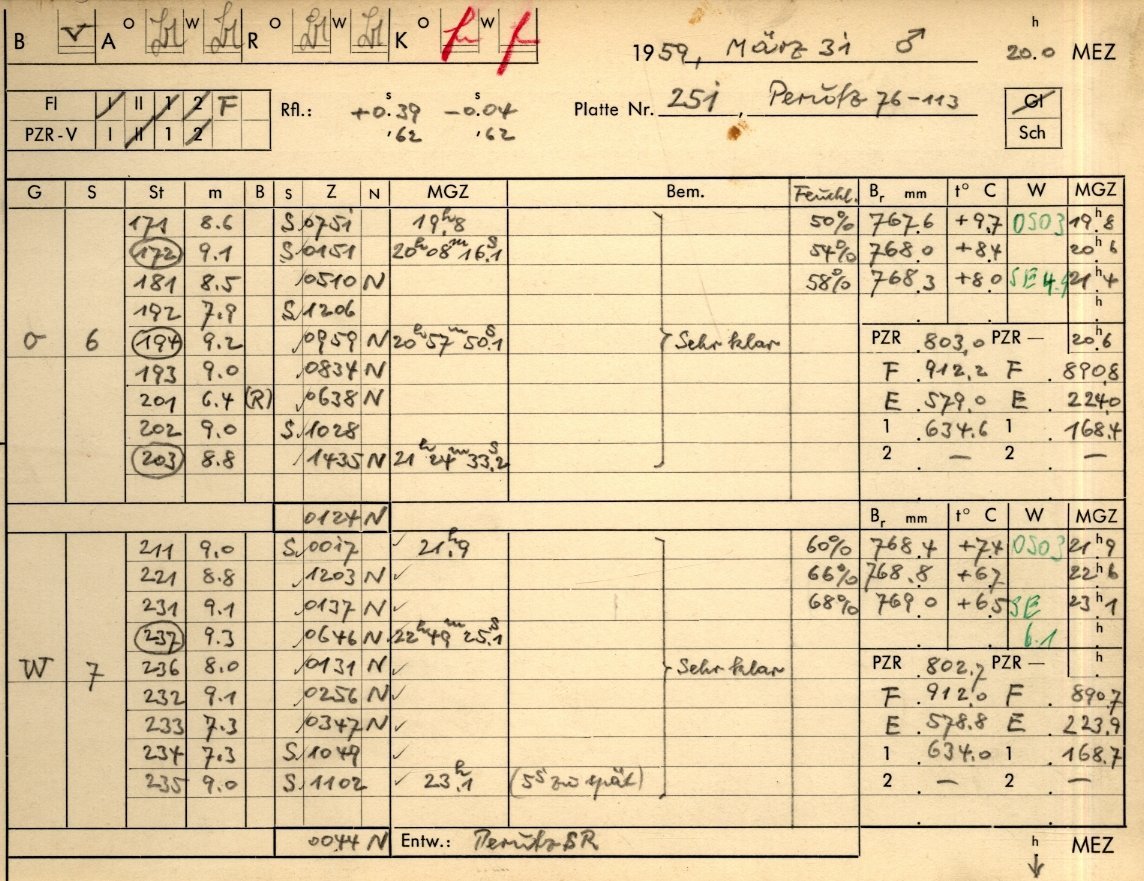 B V A O W R O W K O W 1959, März 31 ♂ 20.0 h MEZ
Fl I II 1 2 F Rfl.: +0.39 s −0.04 s Platte Nr. 251, Perutz 76-113 Gl
PZR-V I II 1 2 .62 .62 Sch
G S St m B S Z N MGZ Bem. Feucht. Br mm t° C W MGZ
171 8.6 S 0751 19h.8 50% 767.6 +9.7 OSO3 19h.8
172 9.1 S 0151 20h 08m 16.1s 54% 768.0 +8.4 20h.6
181 8.5 0510 N 58% 768.3 +8.0 SE 4.9 21h.4
192 7.9 S 1206 h
O 6 194 9.2 0959 N 20h 57m 50.1s Sehr klar PZR 803.0 PZR — 20h.6
193 9.0 0834 N F 912.2 F 890.8
201 6.4 (R) 0638 N E 579.0 E 224.0
202 9.0 S 1028 1 634.6 1 168.4
203 8.8 1435 N 21h 24m 33.2s 2 — 2 —
0124 N Br mm t° C W MGZ
211 9.0 S 0017 ✓ 21h.9 60% 768.4 +7.4 OSO3 21h.9
221 8.8 1203 N ✓ 66% 768.8 +6.7 22h.6
231 9.1 0137 N ✓ 68% 769.0 +6.5 SE 23h.1
237 9.3 0646 N 22h 49m 25.1s 6.1 h
W 7 236 8.0 0131 N ✓ Sehr klar PZR 802.7 PZR — h
232 9.1 0256 N ✓ F 912.0 F 890.7
233 7.3 0347 N ✓ E 578.8 E 223.9
234 7.3 S 1049 ✓ 1 634.0 1 168.7
235 9.0 S 1102 ✓ 23h.1 (5s zu spät) 2 — 2 —
0044 N Entw.: Perutz SR h MEZ